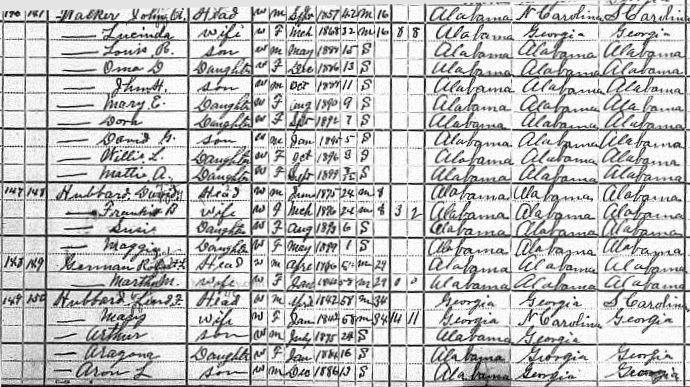 Walker John Head W M Sept 1857 42 M 16 Alabama N Carolina S Carolina
— Lucinda Wife W F Mch 1868 32 M 16 8 8 Alabama Georgia Georgia
— Louis R. Son W M May 1884 15 S Alabama Alabama Alabama
— Oma D Daughter W F Dec 1886 13 S Alabama Alabama Alabama
— John H. Son W M Oct 1888 11 S Alabama Alabama Alabama
— Mary E. Daughter W F Aug 1890 9 S Alabama Alabama Alabama
— Dora Daughter W F Sept 1892 7 S Alabama Alabama Alabama
— David G. Son W M Jan 1895 5 S Alabama Alabama Alabama
— Willie L. Daughter W F Oct 1896 3 S Alabama Alabama Alabama
— Mattie A. Daughter W F Sept 1899 S Alabama Alabama Alabama
147 148 Hubbard David Head W M June 1875 24 M 8 Alabama Alabama Alabama
— B Wife W F Mch 1876 24 M 8 3 2 Alabama Alabama Alabama
— Susie Daughter W F Aug 1893 6 S Alabama Alabama Alabama
— Maggie Daughter W F May 1899 1 S Alabama Alabama Alabama
149 German Robert Head W M Apr M 29 Alabama Alabama Alabama
— Martha M. Wife W F M 29 0 0 Alabama Alabama Alabama
149 150 Hubbard F Head W M Apr 1842 58 M 34 Georgia Georgia S Carolina
— Wife W F Jan 1842 58 M 34 14 11 Georgia N Carolina Georgia
— Arthur Son W M July 1875 24 S Alabama Georgia
— Aragona Daughter W F Jan 1884 16 S Alabama Georgia Georgia
— Aron L Son W M Dec 1886 13 S Alabama Georgia Georgia